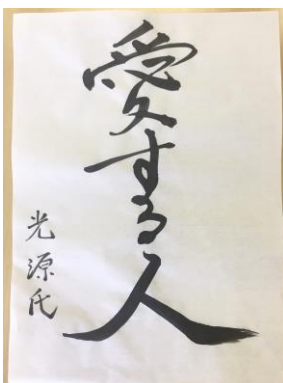 愛する人
光源氏